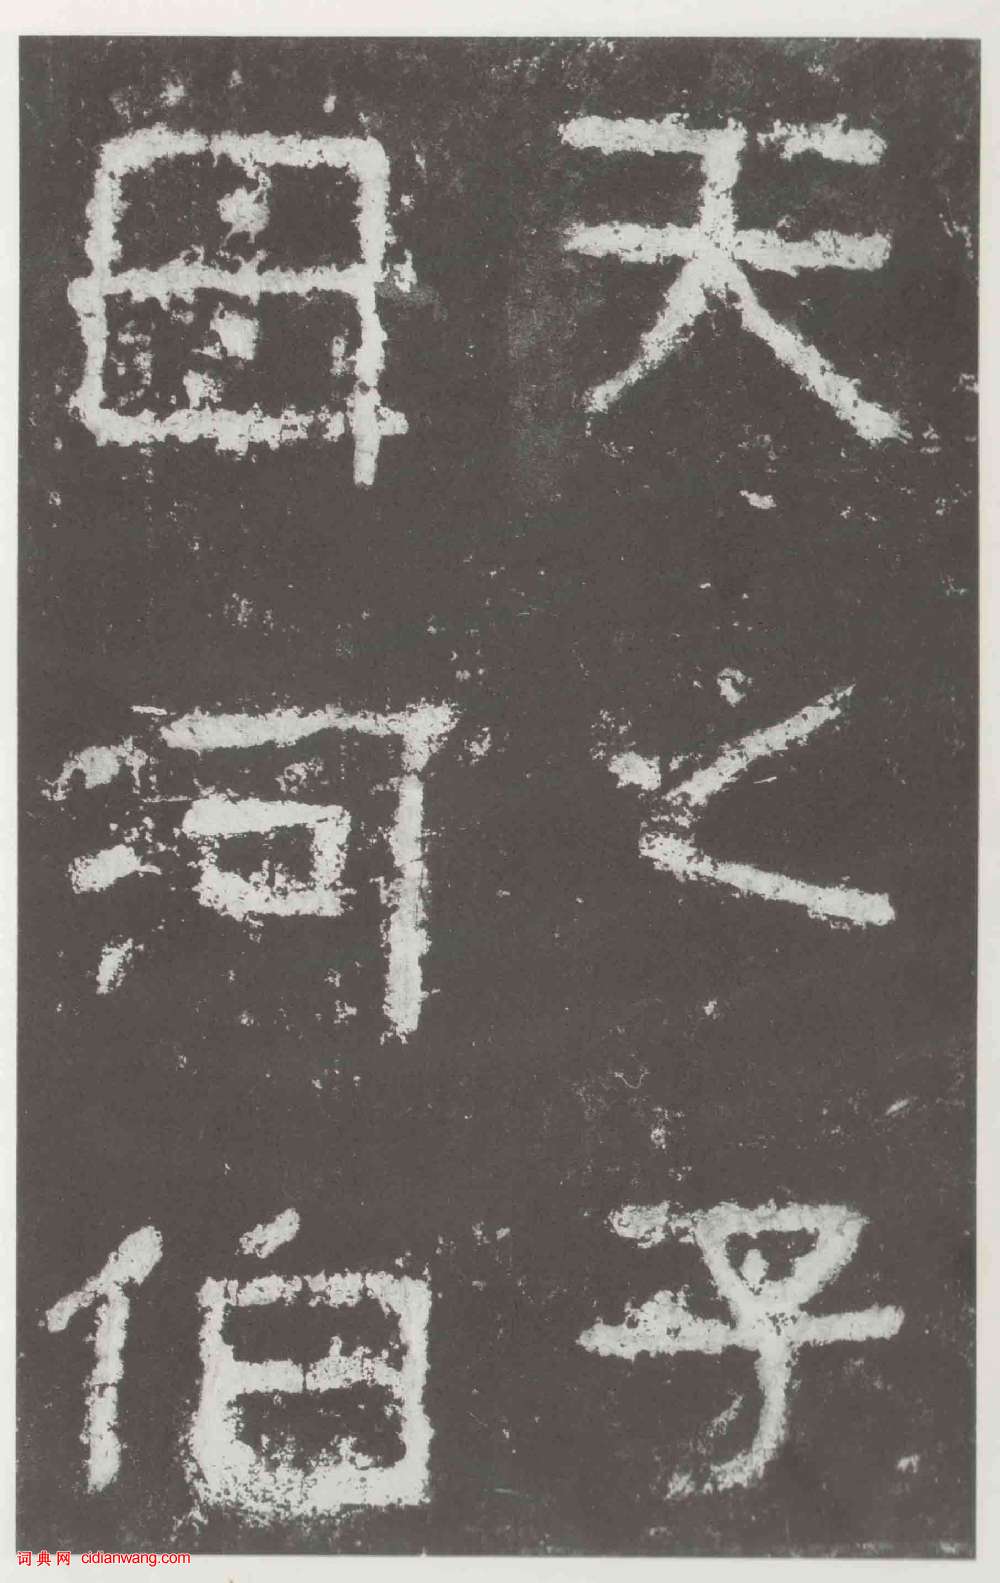 天之子
母河伯
词典网 cidianwang.com